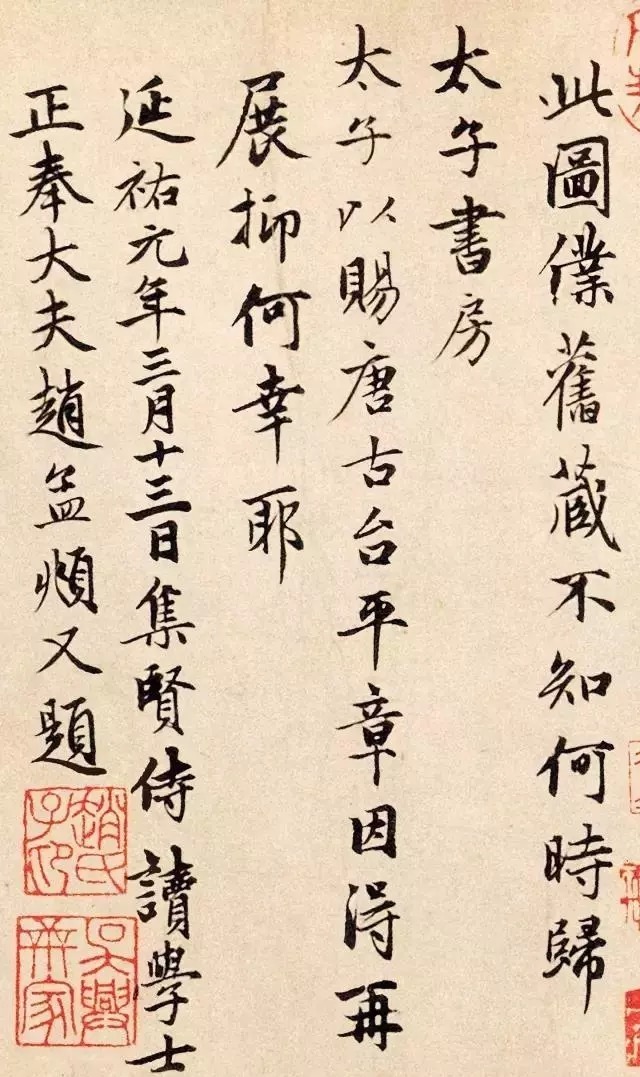 此圖僕舊藏不知何時歸
太子書房
太子以賜唐古台平章因得再
展抑何幸耶
延祐元年三月十三日集賢侍讀學士
正奉大夫趙孟頫又題
趙氏子昂